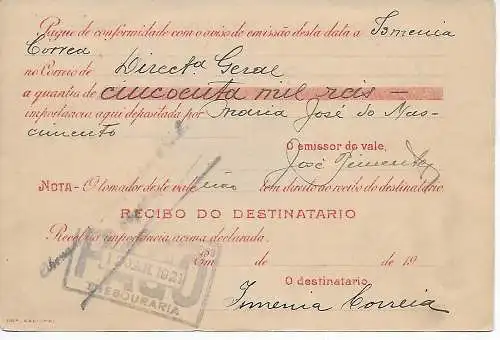 Pague de conformidade com o aviso de emissão desta data a Ismenia
Correa
no Correio de Directa. Geral
a quantia de cincoenta mil reis —
importancia aqui depositada por Maria José do Nas-
cimento
O emissor do vale,
José Pimentel
NOTA - O tomador deste vale não tem direito ao recibo do destinatario.
RECIBO DO DESTINATARIO
Recebi a importancia acima declarada.
Em de de 19
PAGO
THESOURARIA
O destinatario
Ismenia Correia